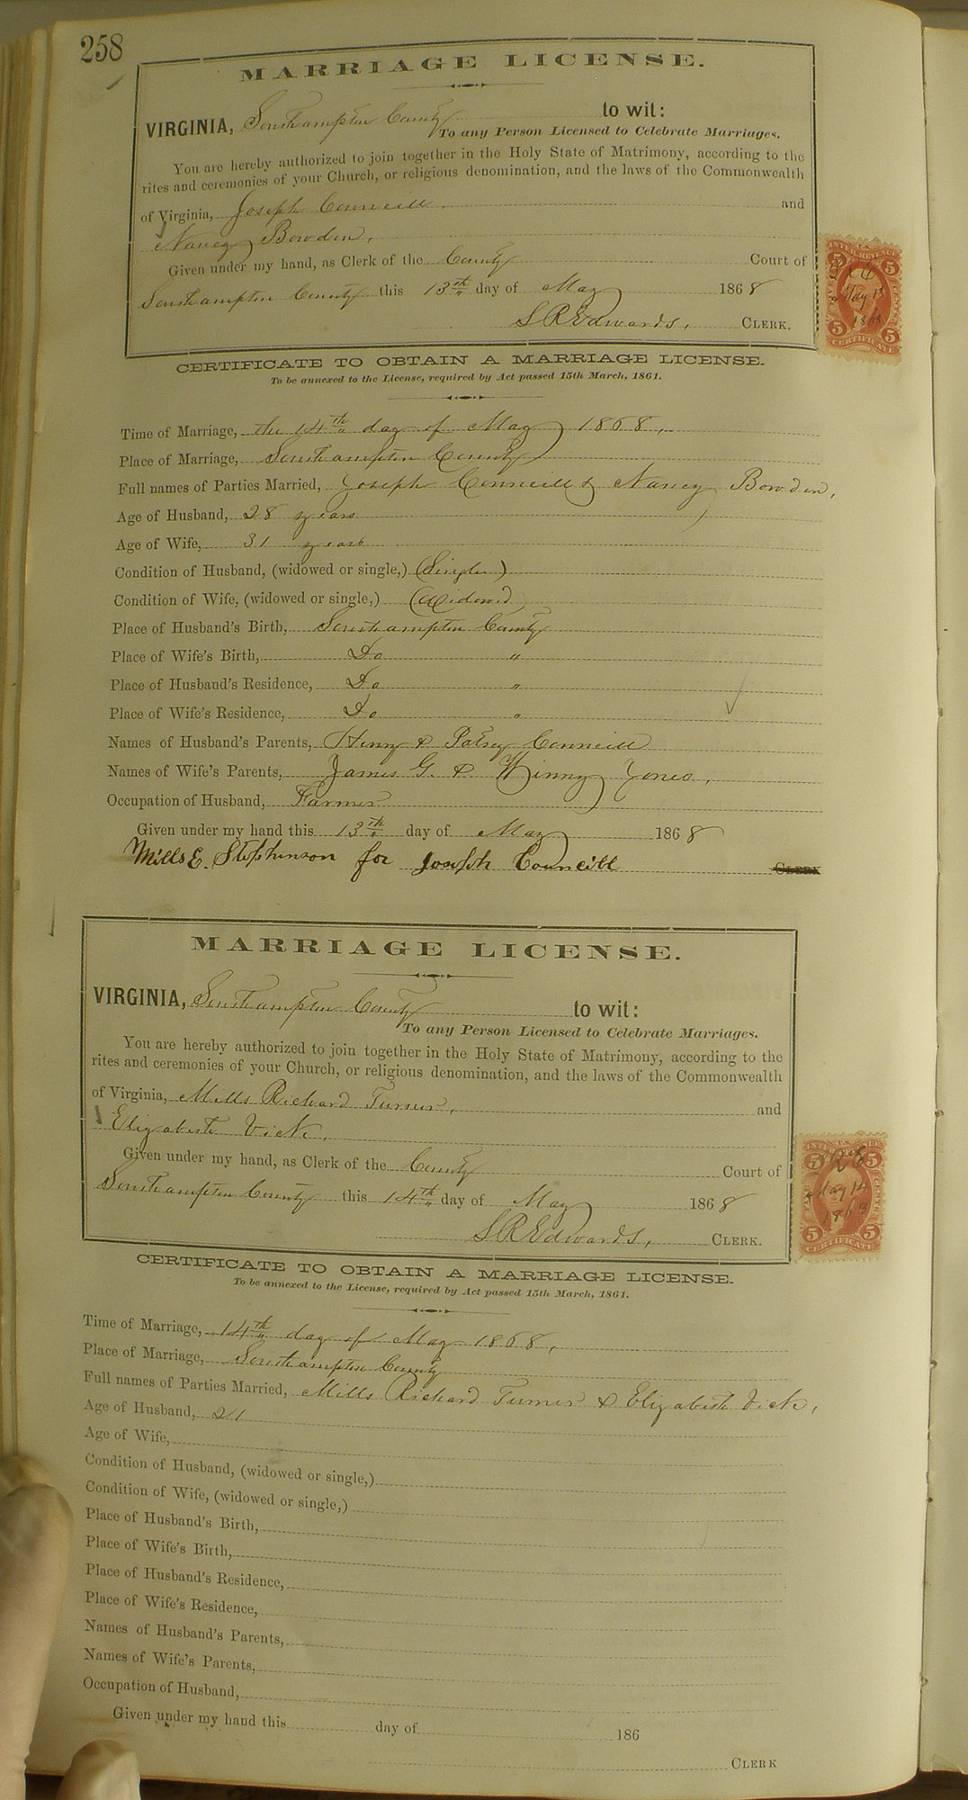 258
MARRIAGE LICENSE.
VIRGINIA, Southampton County to wit:
To any Person Licensed to Celebrate Marriages.
You are hereby authorized to join together in the Holy State of Matrimony, according to the
rites and ceremonies of your Church, or religious denomination, and the laws of the Commonwealth
of Virginia, Joseph Councill and
Nancy Bowden,
Given under my hand, as Clerk of the County Court of
Southampton County this 13th day of May 1868
L R Edwards, CLERK.
CERTIFICATE TO OBTAIN A MARRIAGE LICENSE.
To be annexed to the License, required by Act passed 15th March, 1861.
Time of Marriage, the 14th day of May 1868,
Place of Marriage, Southampton County
Full names of Parties Married, Joseph Councill & Nancy Bowden,
Age of Husband, 28 years
Age of Wife, 31 years
Condition of Husband, (widowed or single,) (Single)
Condition of Wife, (widowed or single,) (Widowed)
Place of Husband's Birth, Southampton County
Place of Wife's Birth, Do "
Place of Husband's Residence, Do "
Place of Wife's Residence, Do "
Names of Husband's Parents, Henry & Patsey Councill
Names of Wife's Parents, James G. & Winny Jones,
Occupation of Husband, Farmer
Given under my hand this 13th day of May 1868
Mills E. Stephinson for Joseph Councill CLERK
MARRIAGE LICENSE.
VIRGINIA, Southampton County to wit:
To any Person Licensed to Celebrate Marriages.
You are hereby authorized to join together in the Holy State of Matrimony, according to the
rites and ceremonies of your Church, or religious denomination, and the laws of the Commonwealth
of Virginia, Mills Richard Turner, and
Elizabeth Vick,
Given under my hand, as Clerk of the County Court of
Southampton County this 14th day of May 1868
L R Edwards, CLERK.
CERTIFICATE TO OBTAIN A MARRIAGE LICENSE.
To be annexed to the License, required by Act passed 15th March, 1861.
Time of Marriage, 14th day of May 1868,
Place of Marriage, Southampton County
Full names of Parties Married, Mills Richard Turner & Elizabeth Vick,
Age of Husband, 21
Age of Wife,
Condition of Husband, (widowed or single,)
Condition of Wife, (widowed or single,)
Place of Husband's Birth,
Place of Wife's Birth,
Place of Husband's Residence,
Place of Wife's Residence,
Names of Husband's Parents,
Names of Wife's Parents,
Occupation of Husband,
Given under my hand this day of 186
CLERK